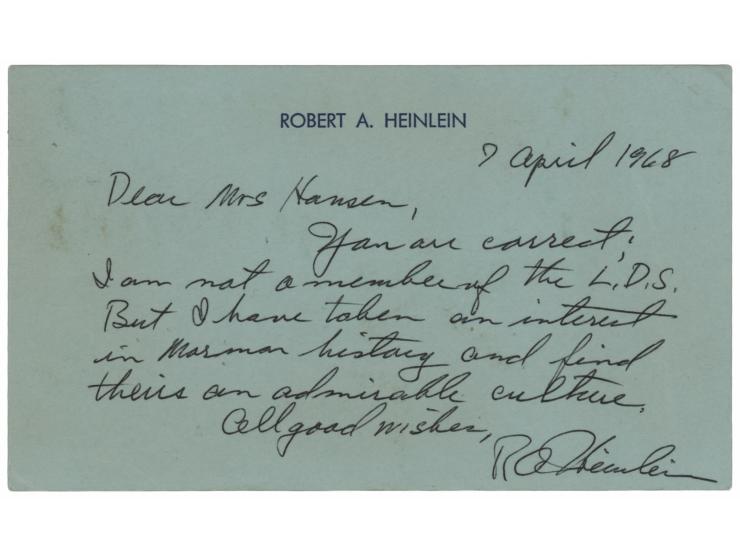 ROBERT A. HEINLEIN
7 April 1968
Dear Mrs Hansen,
You are correct;
I am not a member of the L.D.S.
But I have taken an interest
in Mormon history and find
theirs an admirable culture.
All good wishes,
R A Heinlein